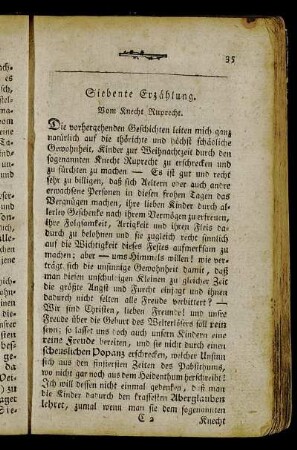 35
Siebente Erzählung.
Vom Knecht Ruprecht.
Die vorhergehenden Geschichten leiten mich ganz
natürlich auf die thörichte und höchst schädliche
Gewohnheit, Kinder zur Weihnachtzeit durch den
sogenannten Knecht Ruprecht zu erschrecken und
zu fürchten zu machen — Es ist gut und recht
sehr zu billigen, daß sich Aeltern oder auch andre
erwachsene Personen in diesen frohen Tagen das
Vergnügen machen, ihre lieben Kinder durch al-
lerley Geschenke nach ihrem Vermögen zu erfreuen,
ihre Folgsamkeit, Artigkeit und ihren Fleis da-
durch zu belohnen und sie zugleich recht sinnlich
auf die Wichtigkeit dieses Festes aufmerksam zu
machen; aber — ums Himmels willen! wie ver-
trägt sich die unsinnige Gewohnheit damit, daß
man diesen unschuldigen Kleinen zu gleicher Zeit
die größte Angst und Furcht einjagt und ihnen
dadurch nicht selten alle Freude verbittert? —
Wir sind Christen, lieben Freunde! und unsre
Freude über die Geburt des Welterlösers soll rein
seyn; so lasset uns doch auch unsern Kindern eine
reine Freude bereiten, und sie nicht durch einen
scheuslichen Popanz erschrecken, welcher Unsinn
sich aus den finstersten Zeiten des Pabstthums,
wo nicht gar noch aus dem Heidenthum herschreibt!
Ich will dessen nicht einmal gedenken, daß man
die Kinder dadurch den krassesten Aberglauben
lehret, zumal wenn man sie dem sogenannten
C 2 Knecht